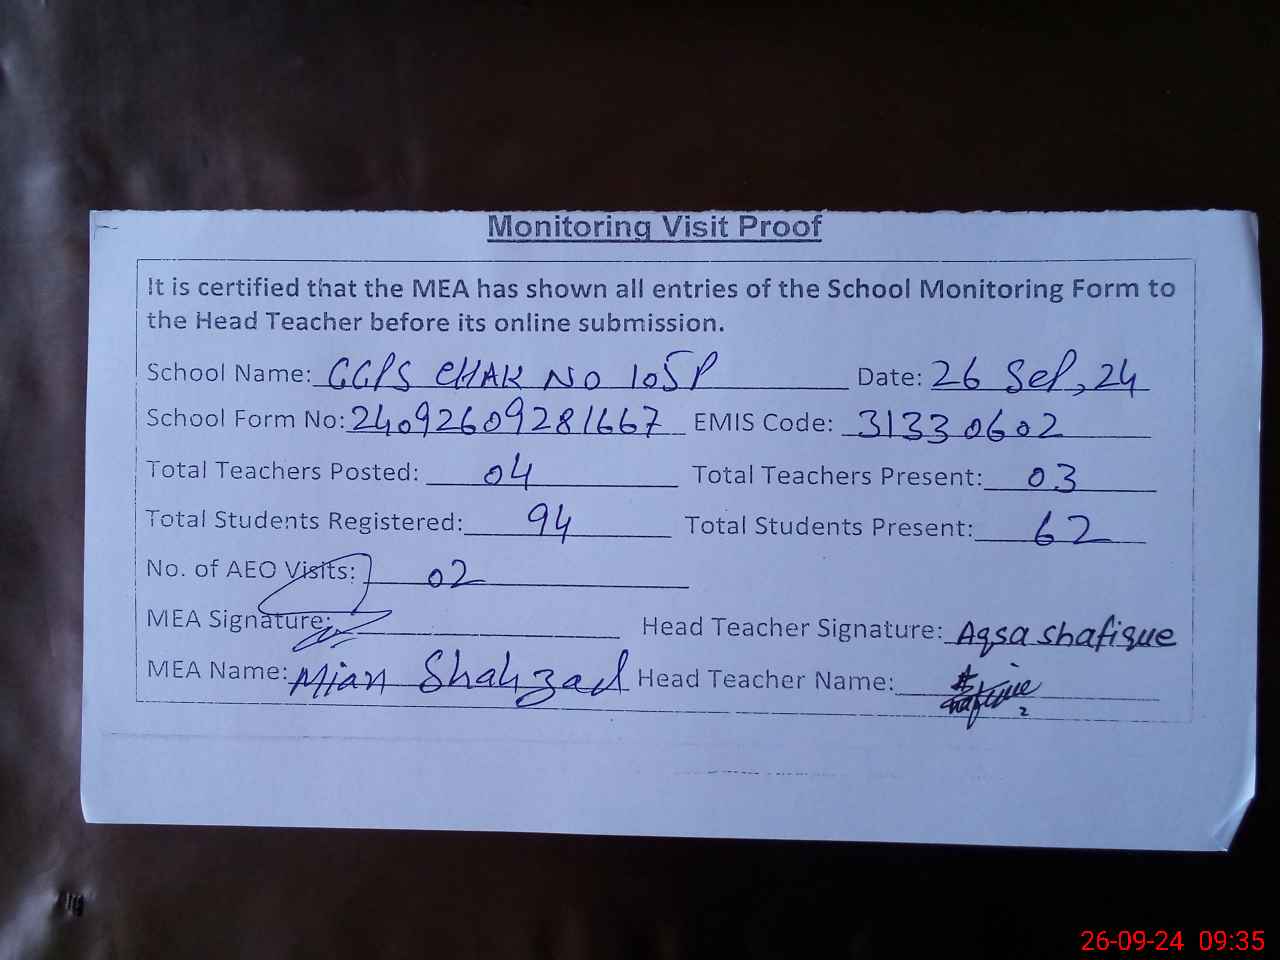 Monitoring Visit Proof
It is certified that the MEA has shown all entries of the School Monitoring Form to
the Head Teacher before its online submission.
School Name: GGPS CHAK NO 105P Date: 26 Sep, 24
School Form No: 24092609281667 EMIS Code: 31330602
Total Teachers Posted: 04 Total Teachers Present: 03
Total Students Registered: 94 Total Students Present: 62
No. of AEO Visits: 02
MEA Signature: Head Teacher Signature: Aqsa shafique
MEA Name: Mian Shahzad Head Teacher Name:
26-09-24 09:35